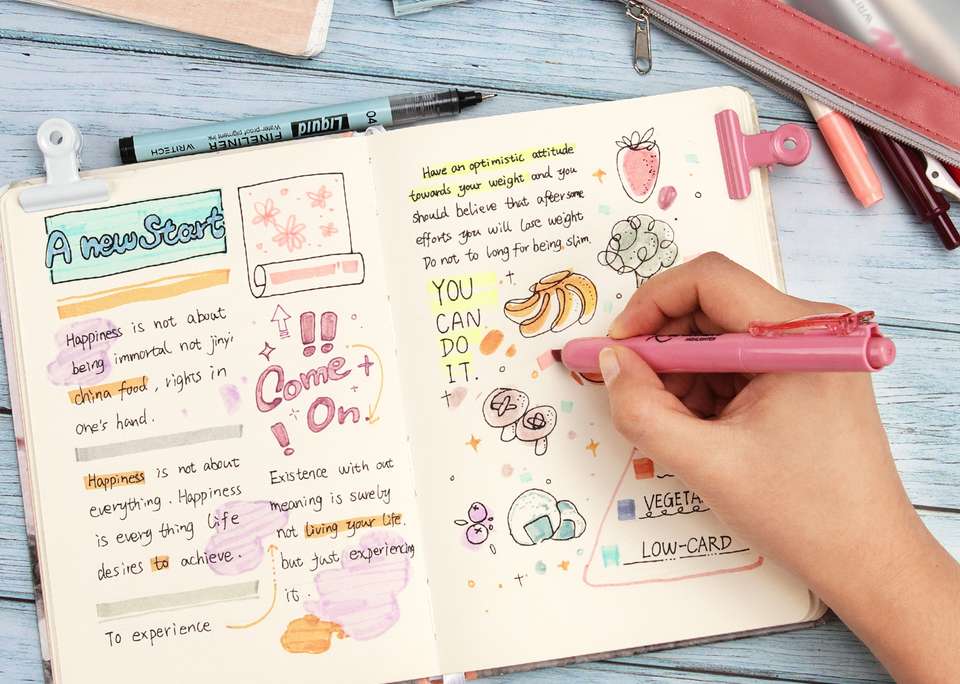 WRITECH
Waterproof pigment ink
FINELINER
Liquid
04
A new Start
Happiness is not about
being immortal not jinyi
china food, rights in
one's hand.
Happiness is not about
everything. Happiness
is every thing life
desires to achieve.
To experience
!!
Come +
On.
!
Existence with out
meaning is surely
not living your life.
but just experiencing
it.
Have an optimistic attitude
towards your weight and you
should believe that after some
efforts you will lose weight
Do not to long for being slim.
YOU
CAN.
DO
IT.
VEGETA
LOW-CARD